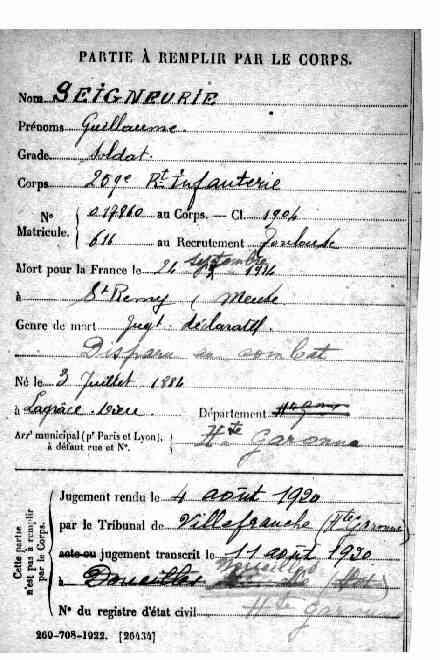 PARTIE À REMPLIR PAR LE CORPS.
Nom SEIGNEURIE
Prénoms Guillaume.
Grade soldat.
Corps 209e Rt infanterie
N° Matricule. 017860 au Corps. — Cl. 1904
616 au Recrutement Toulouse
Mort pour la France le 24 septembre 1914
à St Remy (Meuse
Genre de mort Jugt déclaratif.
Disparu en combat
Né le 3 Juillet 1884
à Lagrâce-Dieu. Département Hte
Arrt municipal (pr Paris et Lyon), à défaut rue et N°. Hte Garonne
Cette partie n'est pas à remplir par le Corps.
Jugement rendu le 4 août 1920
par le Tribunal de Villefranche (Hte Garonne)
acte ou jugement transcrit le 11 août 1920
à
N° du registre d'état civil Hte Garonne
269-708-1922. [26434]